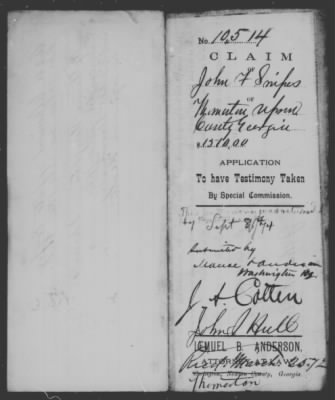 No. 10,514
CLAIM
OF
John F Snipes
OF
Thomaston Upson
County Georgia
$1510.00
APPLICATION
To have Testimony Taken
By Special Commission.
by Sept
Submitted by
Washington
J A Cotten
John I Hull
LEMUEL B. ANDERSON,
County, Georgia.
Thomaston